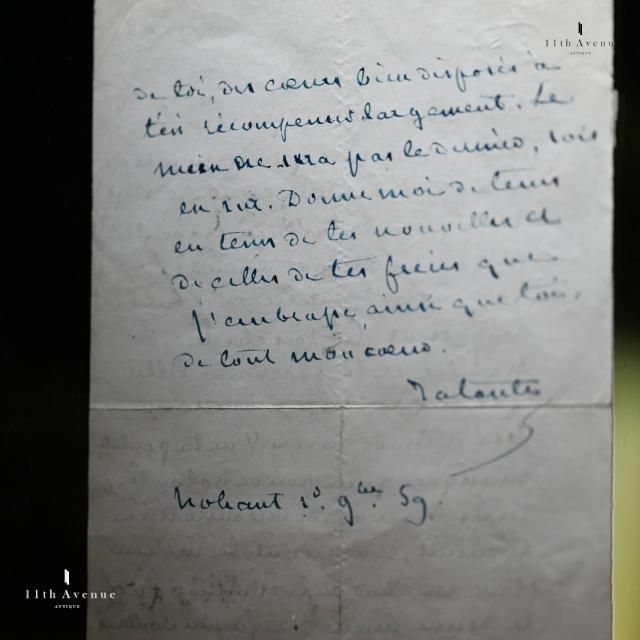 11th Avenue
ANTIQUE
de toi, des cœurs bien disposés à
t'en récompenser largement. Le
mien ne sera pas le dernier, sois
en sur. Donne moi de tems
en tems de tes nouvelles et
de celles de tes frères que
j'embrasse, ainsi que toi,
de tout mon cœur.
Ta tante
Nohant 9bre 59.
11th Avenue
ANTIQUE